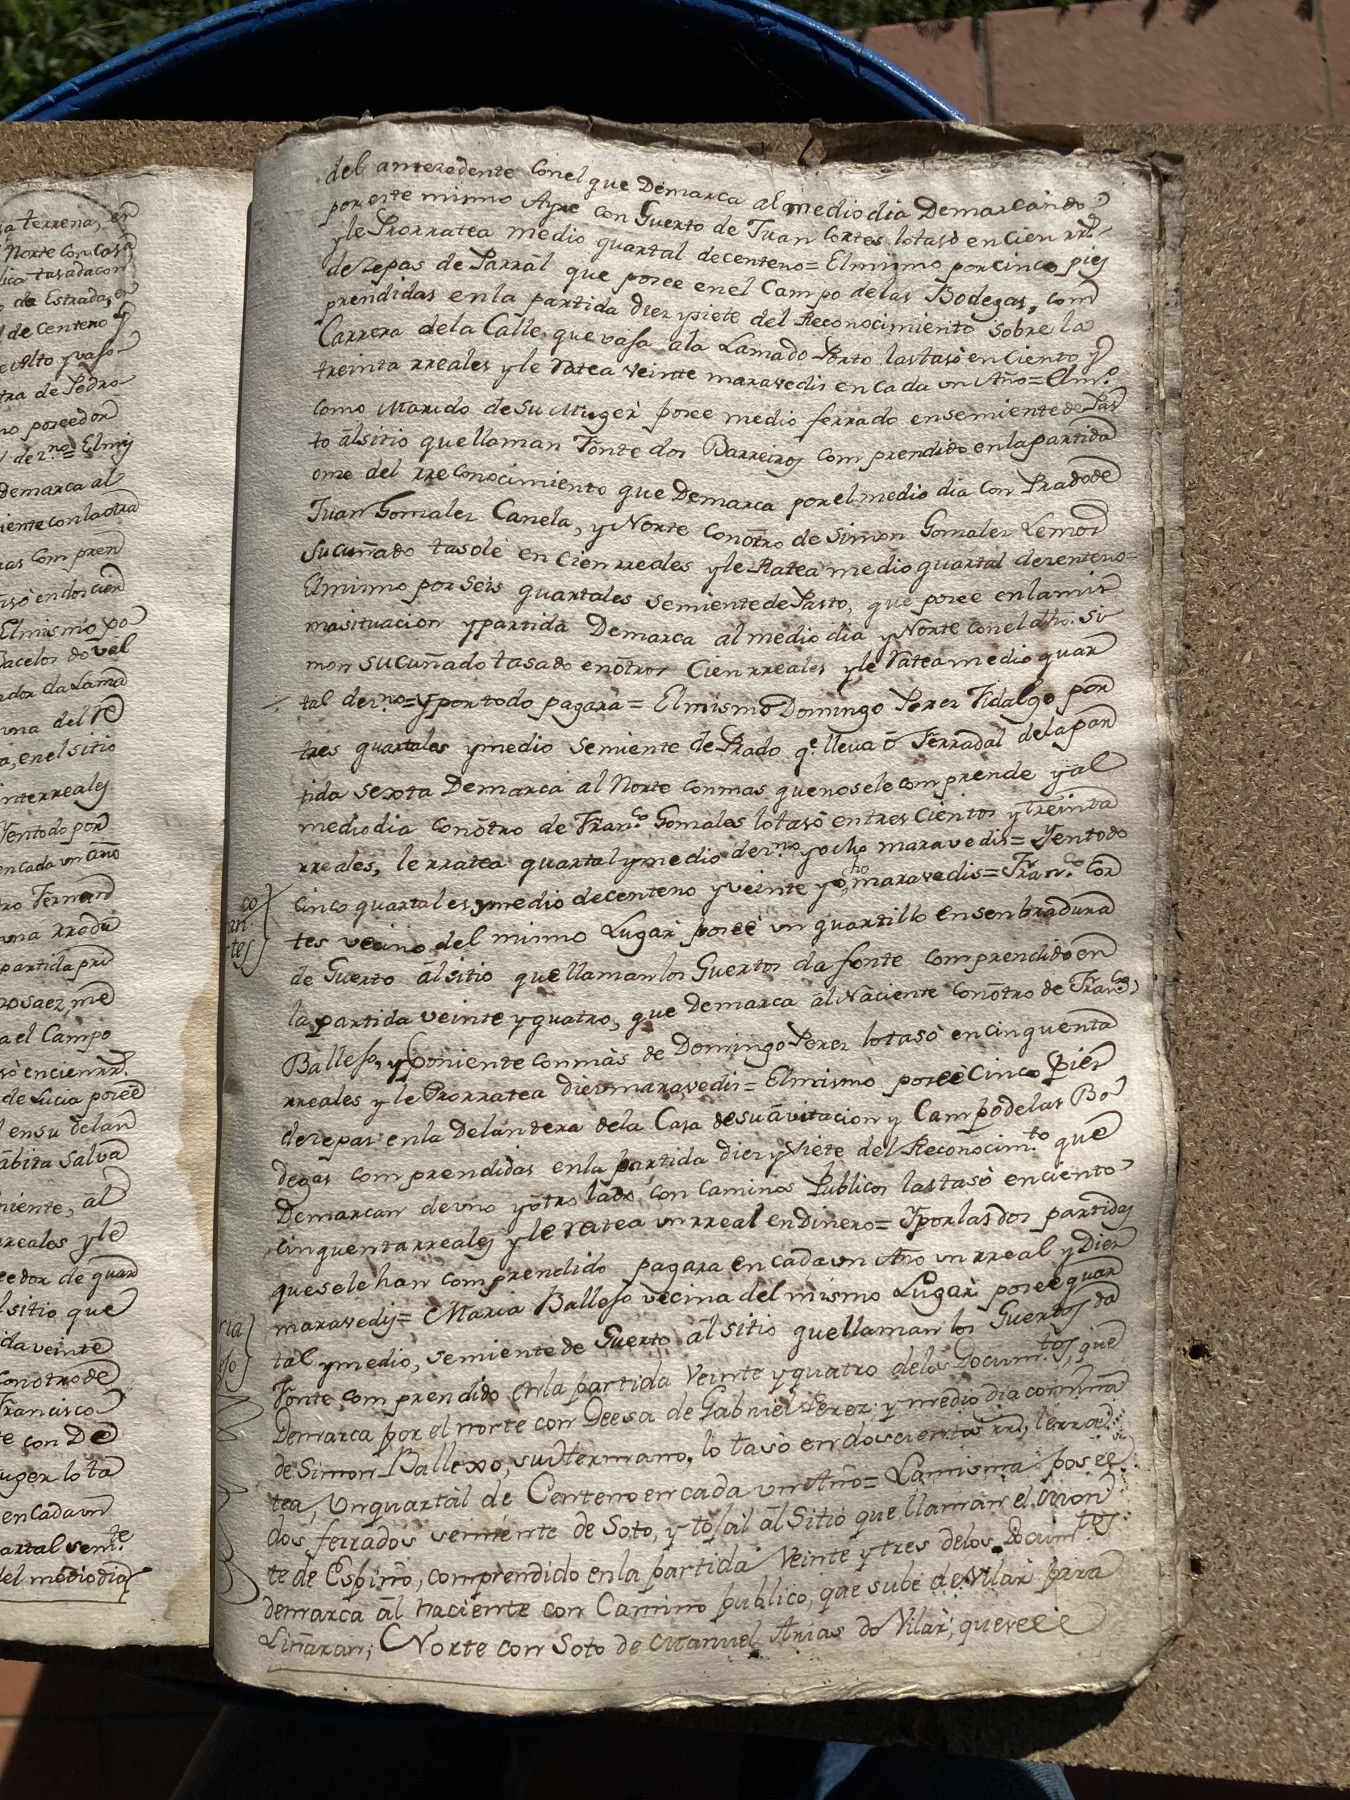 sa terrena, en
Norte con Casa
lica tasada con
de Estrada, en
de Centeno y
e Alto y vajo
tra de Pedro
no poseedor
de z.no = El mis
Demarca al
niente con la otra
nas compren
asó en dos cien
El mismo po
Bacelos do val
ador da Lama
una del Re
a, en el sitio
inte rreales
Yen todo por
en Cada un Año
ro Fernand
una rreda
partida pri
no saez, me
a el Campo
só en cien rr.s
de Lucia poseé
en su delan
ábita Salva
niente, al
rreales y le
eedor de quar
l sitio que
ida veinte
con otro de
Francisco
te con De
uger lo ta
en Cada un
artal semi.te
del mediodia
del anteredente con el que Demarca al mediodia Demarcando
por este mismo Ayre con Guerto de Juan Cortes lo tasó en Cien rr.s
y le Prorratea medio quartal de centeno = El mismo por cinco pies
de zepas de Parrál que posee en el Campo de las Bodegas, com
prendidas en la partida diez y siete del Reconocimiento sobre la
Carrera de la Calle que vasa ala Lamado Porto las tasó en Ciento y
treinta rreales y le Ratea veinte maravedis en cada un Año = El m.o
como Marido de su Muger posee medio ferrado en semiente de Pas
to ál sitio que llaman Fonte dos Barreiros comprendido en la partida
onze del rreconocimiento que Demarca por el medio dia con Prado de
Juan Gonzalez Canela, y Norte con ótro de Simon Gonzalez Lemos
su cuñado tasolé en Cien rreales y le Ratea medio quartal de zenteno =
El mismo por Seis quartales Semiente de Pasto, que posee en la mis
ma situacion y partida Demarca al medio dia y Norte con el dho. Si
mon su cuñado tasado en ótros Cien rreales y le Ratea medio quar
tal de z.no = y por todo pagara = El mismo Domingo Perez Fidalgo por
tres quartales y medio Semiente de Prado q.e lleva ó Ferradal de la par
tida sexta Demarca al Norte con mas que no se le comprende y al
mediodia con ótro de Fran.co Gonzales lo tasó en trescientos y treinta
rreales, le rratea quartal y medio de z.no y ocho maravedis = Yen todo
cinco quartales y medio de centeno y veinte y ó.ho maravedis = Fran.co Cor
tes vecino del mismo Lugar poseé un quartillo en senbradura
de Guerto ál sitio que llaman los Guertos da fonte comprendido en
la partida veinte y quatro, que Demarca al Naciente con ótro de Fran.co
Balleso, y poniente con mas de Domingo Perez lo tasó en cinquenta
rreales y le Prorratea diez maravedis = El mismo poseé Cinco pies
de zepas en la Delantera de la Casa de su ávitacion y Campo de las Bo
degas comprendidas en la partida diez y siete del Reconocim.to que
Demarcan de uno y ótro lado, con caminos Publicos las tasó en ciento
cinquenta rreales y le ratea un rreal en dinero = Y por las dos partidas
que se le han comprendido pagara en cada un Año un rreal y Diez
maravedis = Maria Balleso vecina del mismo Lugar poseé quar
tal y medio, semiente de Guerto ál sitio que llaman los Guertos da
Fonte comprendido en la partida Veinte y quatro de los Docum.tos, que
Demarca por el norte con Deesa de Gabriel Perez, y medio dia con
de Simon Ballexo, su Hermano, lo tasó en doscientos rr.s, le rra
tea, Un quartál de Centeno en cada un Año = La misma poseé
dos ferrados semiente de Soto, y tojal ál Sitio que llaman el Mon
te de Espiño, comprendido en la partida Veinte y tres de los Docum.tos
demarca ál naciente con Camino publico, que sube de Vilar para
Liñaran; Norte con Soto de Manuel Arias do Vilar, que
co
an
tes
ria
eso